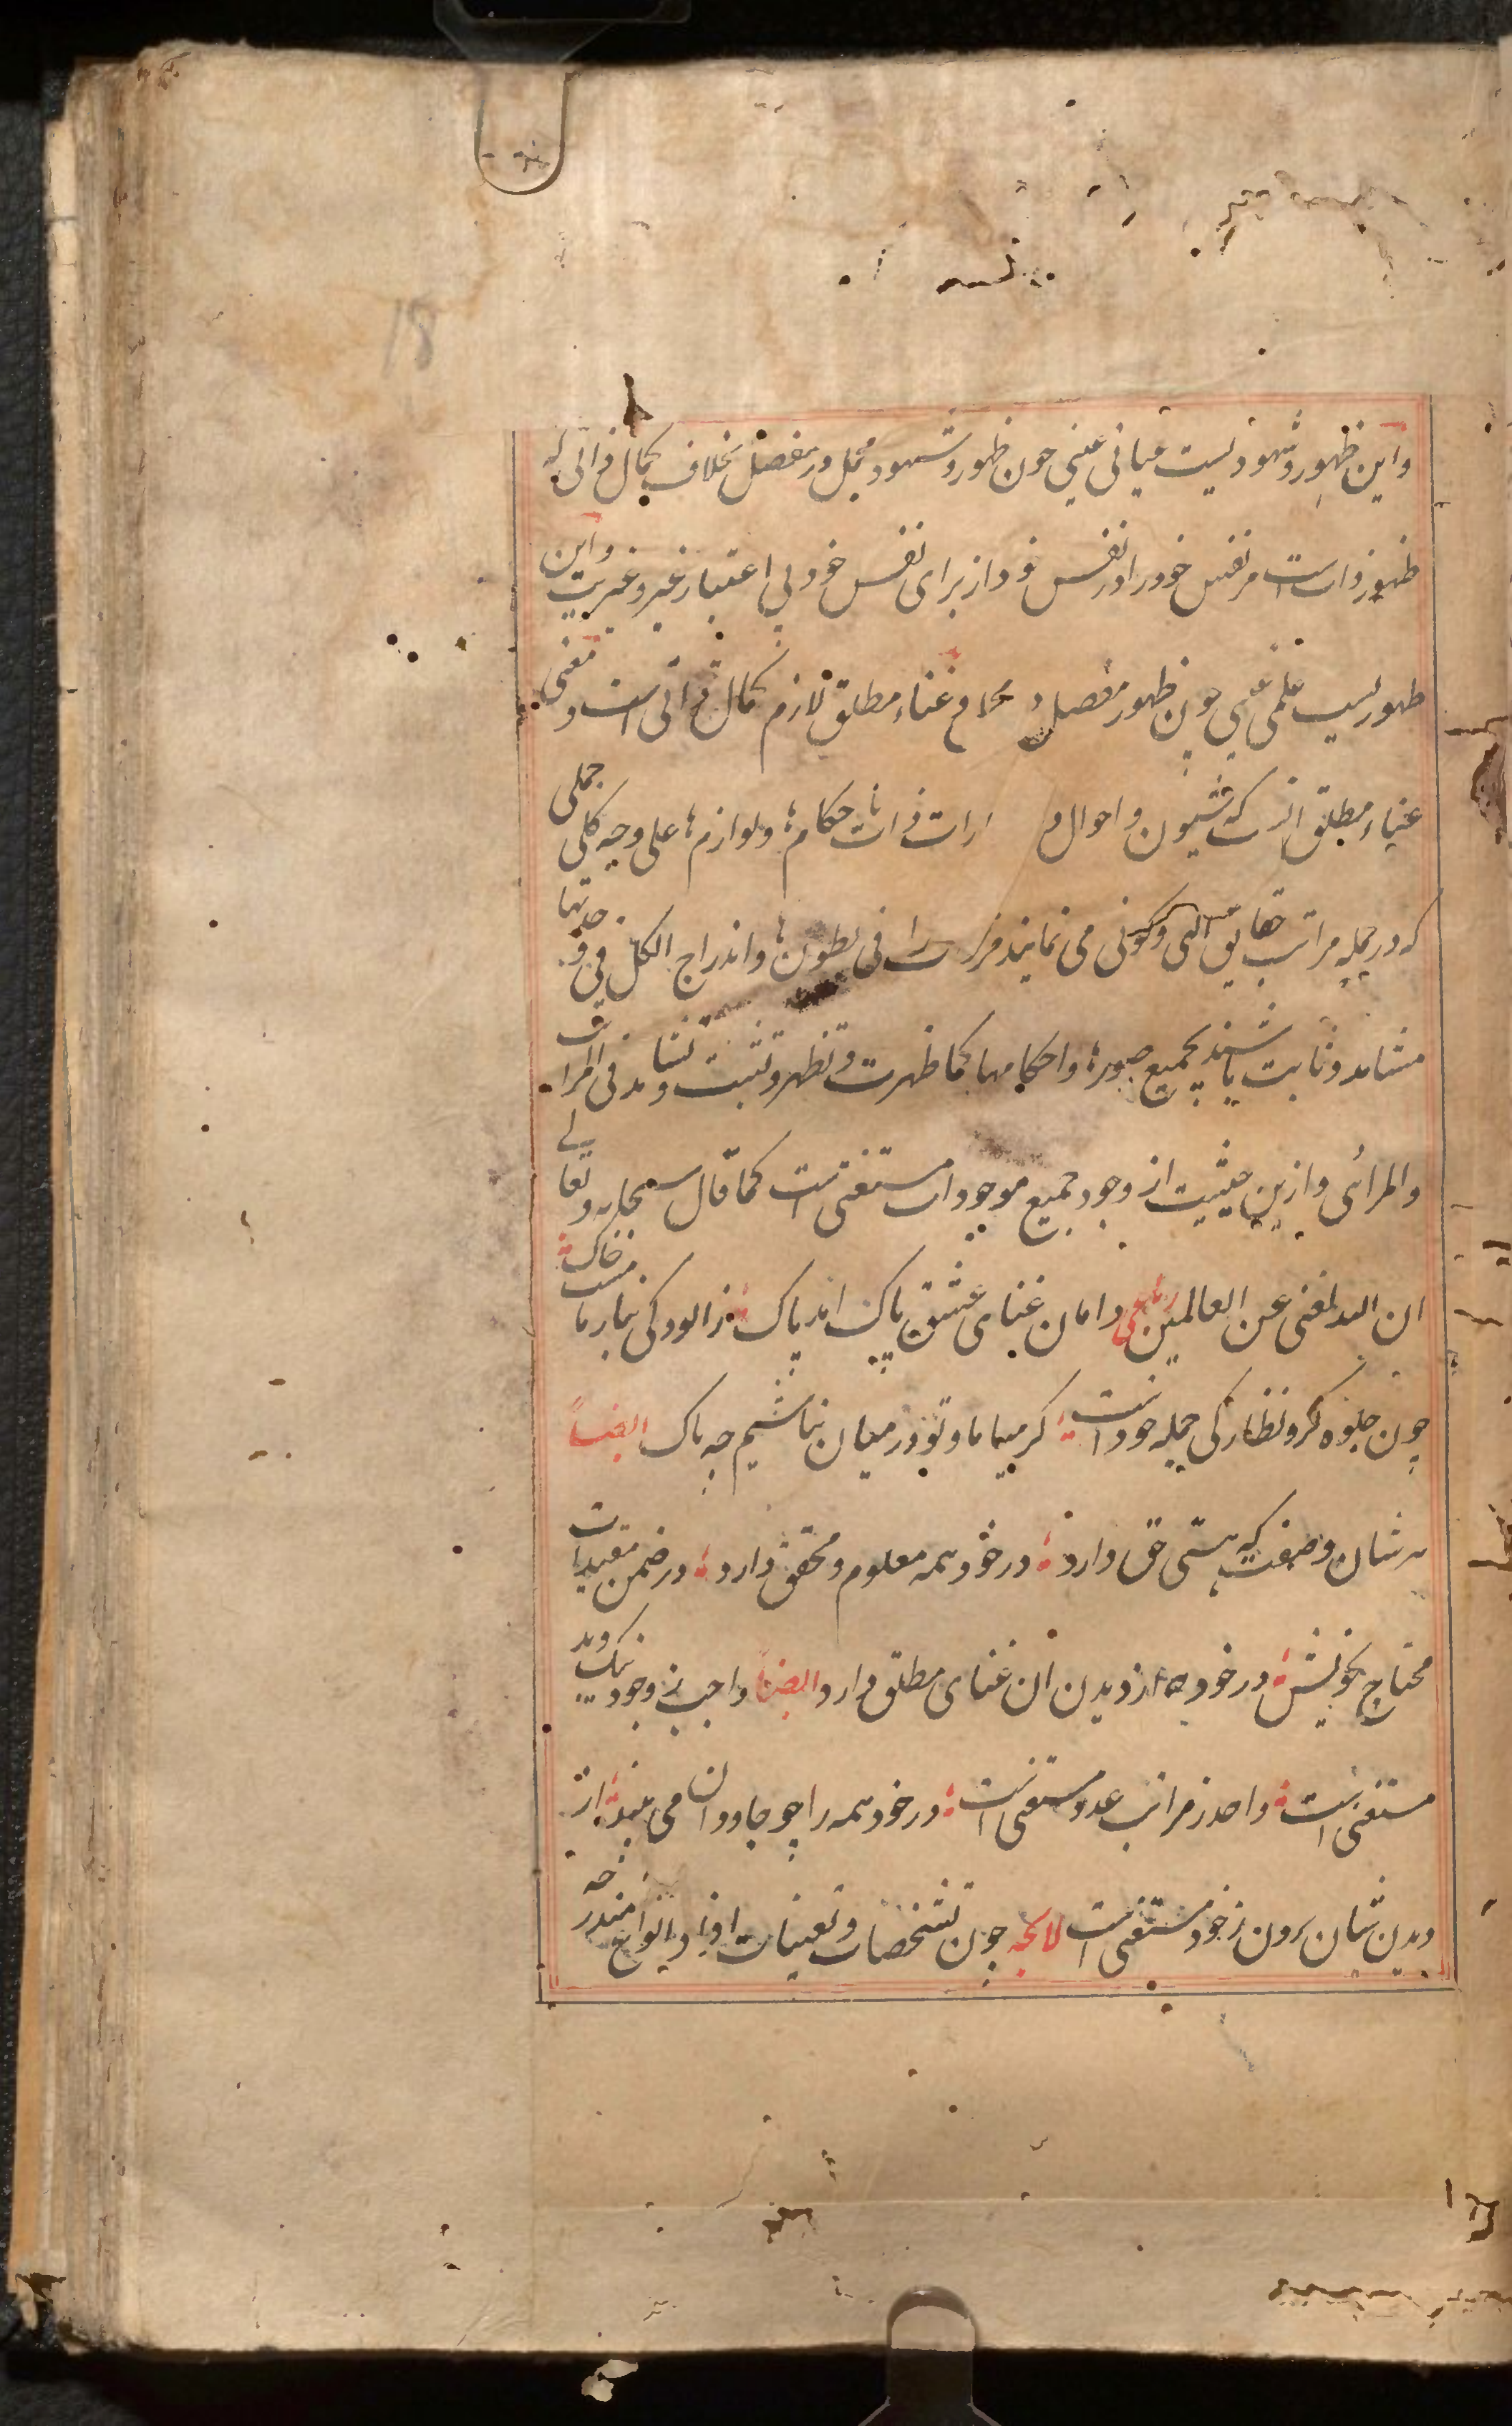 18
واین ظهور و شهودیست عیانی عینی چون ظهور و شهود مجمل در مفصل بخلاف کمال ذاتی که
ظهور ذات است مر نفس خود را در نفس خود از برای نفس خود بی اعتبار غیر و غیریت واین
ظهوریست علمی غیبی چون ظهور مفصل در غناء مطلق لازم کمال ذاتی است و معنی
غناء مطلق آنست که شیون و احوال و ارات ذات باحکامها ولوازمها علی وجه کلی جملی
که در جمله مراتب حقایق الهی و کونی می نمایند مر ذات را فی بطونها واندراج الکل فی وحدتها
مشاهد و ثابت باشند بجمیع صورها واحکامها کما ظهرت وتظهر وتثبت وتشاهد فی المراتب
والمرائی وازین حیثیت از وجود جمیع موجودات مستغنی است کما قال سبحانه وتعالی
ان الله لغنی عن العالمین رباعی دامان غنای عشق پاک آمد پاک ز آلودگی نیاز با مشت خاک
چون جلوه گر و نظارگی جمله خود است گر ما و تو در میان نباشیم چه باک ایضاً
هر شان و صفت که هستی حق دارد در خود همه معلوم و محقق دارد در ضمن مقیدات
محتاج بخویش در خود از دیدن آن غنای مطلق دارد ایضاً واجب ز وجود نیک و بد
مستغنی است واحد ز مراتب عدد مستغنی است در خود همه را چو جاودان می بیند از
دیدن شان برون ز خود مستغنی است لایحه چون تشخصات و تعینات افراد انواع مندرجه